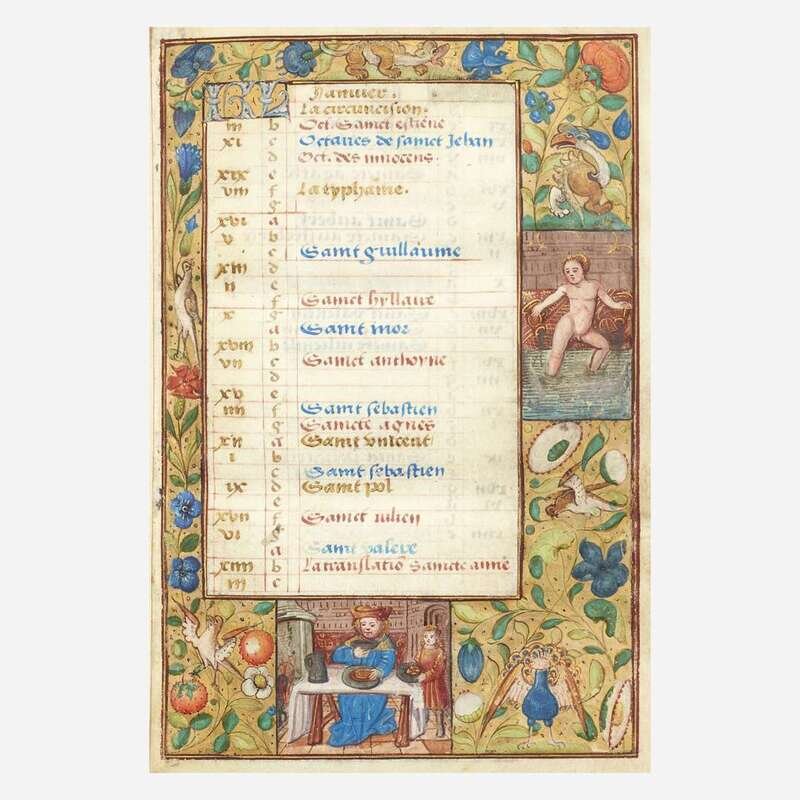 KL Januier.
La circuncision.
iii b Oct. Sainct estiene
xi c Octaves de sainct Jehan
d Oct. des innocens.
xix e
viii f La typhaine.
g
xvi a
v b
c Saint guillaume
xiii d
ii e
f Sainct hyllaire
x g
a Saint mor
xviii b
vii c Sainct anthoyne
d
xv e
iiii f Saint sebastien
g Saincte agnes
xii a Saint vincent
i b
c Saint sebastien
ix d Saint pol
e
xvii f Sainct iulien
vi g
a Saint valere
xiiii b La translatiō Saincte anne
iii c